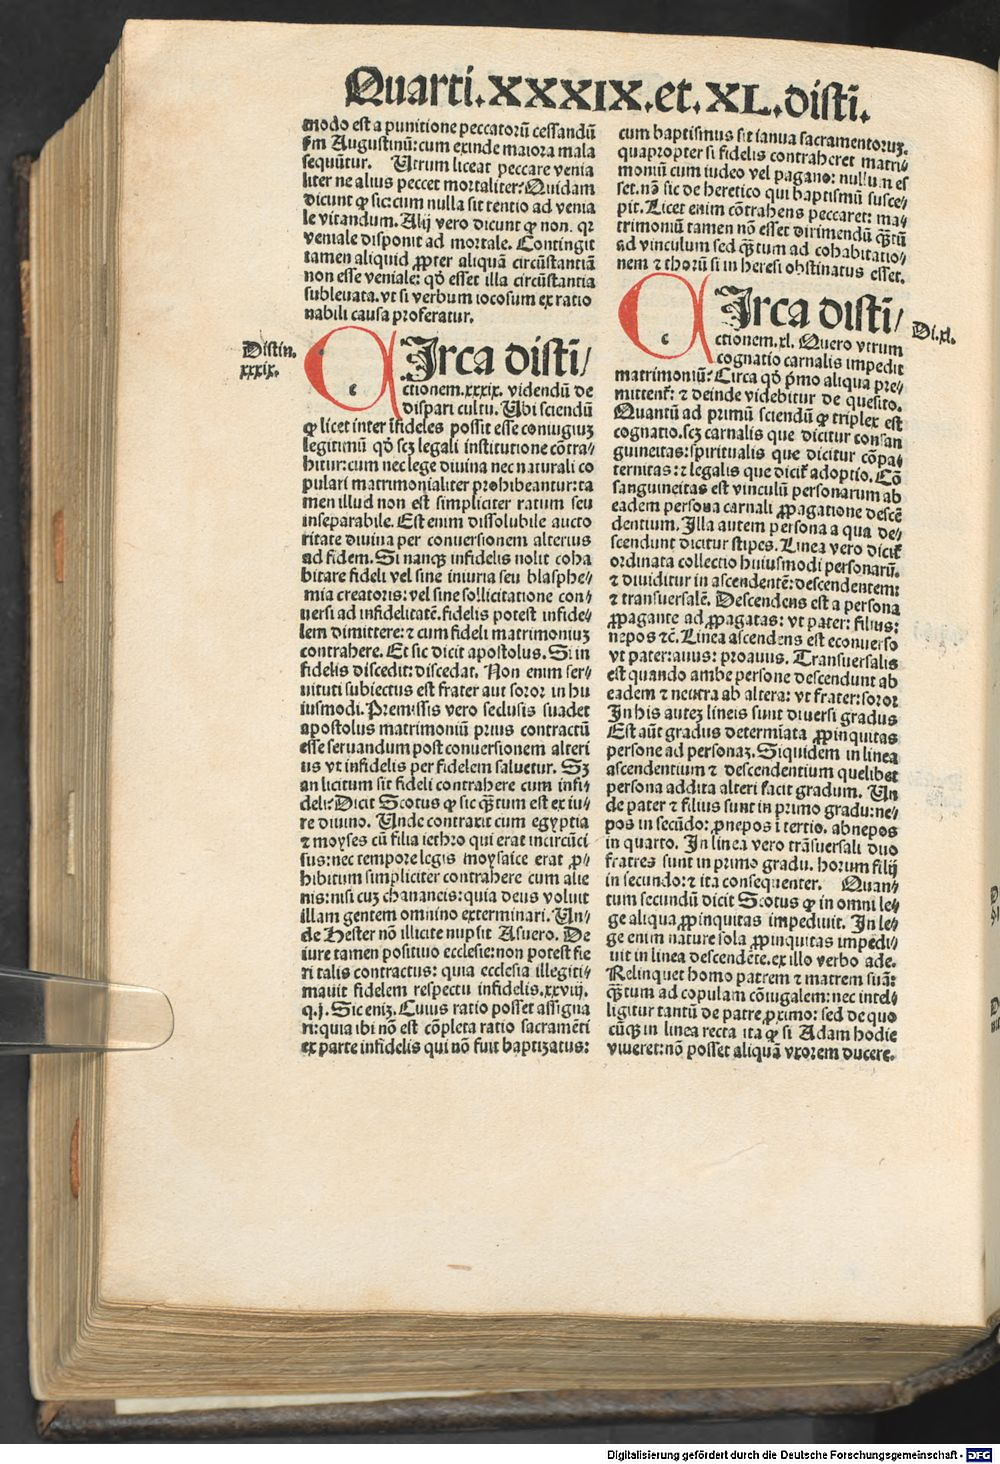 Quarti.XXXIX.et.XL.distī.
modo est a punitione peccatorū cessandū
ẜm Augustinū: cum exinde maiora mala
sequūtur. Utrum liceat peccare venia
liter ne alius peccet mortaliter? Quidam
dicunt ꝙ sic: cum nulla sit tentio ad venia
le vitandum. Alij vero dicunt ꝙ non. qꝛ
veniale disponit ad mortale. Contingit
tamen aliquid ꝓpter aliquā circūstantiā
non esse veniale: qd̓ esset illa circūstantia
subleuata. vt si verbum iocosum ex ratio
nabili causa proferatur.
Distin.
xxxix.
c
Irca distī/
ctionem.xxxix. videndū de
dispari cultu. Ubi sciendū
ꝙ licet inter īfideles possit esse coniugiuꝫ
legitimū qd̓ scꝫ legali institutione cōtra/
hitur: cum nec lege diuina nec naturali co
pulari matrimonialiter prohibeantur: ta
men illud non est simpliciter ratum seu
inseparabile. Est enim dissolubile aucto
ritate diuina per conuersionem alterius
ad fidem. Si nanqꝫ infidelis nolit coha
bitare fideli vel sine iniuria seu blasphe/
mia creatoris: vel sine sollicitatione con/
uersi ad infidelitatē. fidelis potest infide/
lem dimittere: ⁊ cum fideli matrimoniuꝫ
contrahere. Et sic dicit apostolus. Si in
fidelis discedit: discedat. Non enim ser/
uituti subiectus est frater aut soror in hu
iusmodi. Premissis vero seclusis suadet
apostolus matrimoniū prius contractū
esse seruandum post conuersionem alteri
us vt infidelis per fidelem saluetur. Sꝫ
an licitum sit fideli contrahere cum infi/
deli? Dicit Scotus ꝙ sic qꝫtum est ex iu/
re diuino. Unde contraxit cum egyptia
⁊ moyses cū filia iethro qui erat incircūci
sus: nec tempore legis moysaice erat ꝓ/
hibitum simpliciter contrahere cum alie
nis: nisi cuꝫ chananeis: quia deus voluit
illam gentem omnino exterminari. Un/
de Hester nō illicite nupsit Asuero. De
iure tamen positiuo ecclesie: non potest fie
ri talis contractus: quia ecclesia illegiti/
mauit fidelem respectu infidelis. xxviij.
q.j. Sic eniꝫ. Cuius ratio posset assigna
ri: quia ibi nō est cōpleta ratio sacramēti
ex parte infidelis qui nō fuit baptizatus:
cum baptismus sit ianua sacramentoruꝫ.
quapropter si fidelis contraheret matri/
moniū cum iudeo vel pagano: nullum es
set. nō sic de heretico qui baptismū susce/
pit. Licet enim cōtrahens peccaret: ma/
trimoniū tamen nō esset dirimendū qꝫtū
ad vinculum sed qꝫtum ad cohabitatio/
nem ⁊ thorū si in heresi obstinatus esset.
Di.xl.
c
Irca distī/
ctionem.xl. Quero vtrum
cognatio carnalis impedit
matrimoniū? Circa qd̓ pꝛmo aliqua pre/
mittentꝛ: ⁊ deinde videbitur de quesito.
Quantū ad primū sciendū ꝙ triplex est
cognatio. scꝫ carnalis que dicitur consan
guineitas: spiritualis que dicitur cōpa/
ternitas: ⁊ legalis que dicitꝛ adoptio. Cō
sanguineitas est vinculū personarum ab
eadem persona carnali ꝓpagatione descē
dentium. Illa autem persona a qua de/
scendunt dicitur stipes. Linea vero dicitꝛ
ordinata collectio huiusmodi personarū.
⁊ diuiditur in ascendentē: descendentem:
⁊ transuersalē. Descendens est a persona
ꝓpagante ad ꝓpagatas: vt pater: filius:
nepos ⁊c̄. Linea ascendens est econuerso
vt pater: auus: proauus. Transuersalis
est quando ambe persone descendunt ab
eadem ⁊ neutra ab altera: vt frater: soror
In his auteꝫ lineis sunt diuersi gradus
Est aūt gradus determīata ꝓpinquitas
persone ad personaꝫ. Siquidem in linea
ascendentium ⁊ descendentium quelibet
persona addita alteri facit gradum. Un
de pater ⁊ filius sunt in primo gradu: ne/
pos in secūdo: ꝓnepos ī tertio. abnepos
in quarto. In linea vero trāsuersali duo
fratres sunt in primo gradu. horum filij
in secundo: ⁊ ita consequenter. Quan/
tum secundū dicit Scotus ꝙ in omni le/
ge aliqua ꝓpinquitas impediuit. In le/
ge enim nature sola ꝓpinquitas impedi/
uit in linea descendēte. ex illo verbo ade.
Relinquet homo patrem ⁊ matrem suā:
qꝫtum ad copulam cōiugalem: nec intel/
ligitur tantū de patre ꝓximo: sed de quo
cūqꝫ in linea recta ita ꝙ si Adam hodie
viueret: nō posset aliquā vxorem ducere.
Digitalisierung gefördert durch die Deutsche Forschungsgemeinschaft - DFG